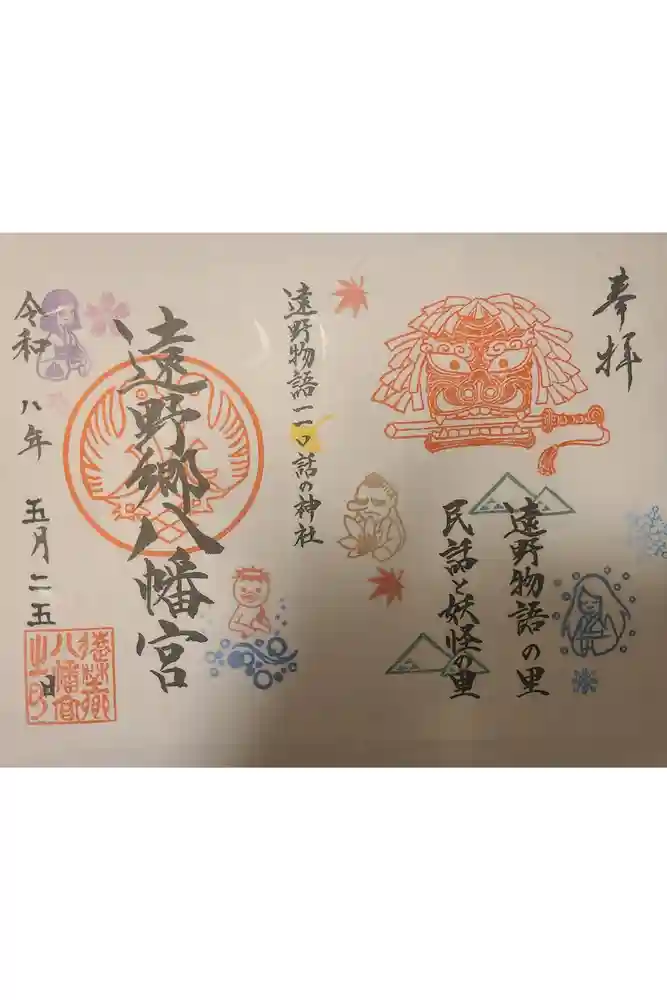 奉拝
遠野物語の里
民話と妖怪の里
遠野物語一一〇話の神社
遠野郷八幡宮
令和八年五月二五日